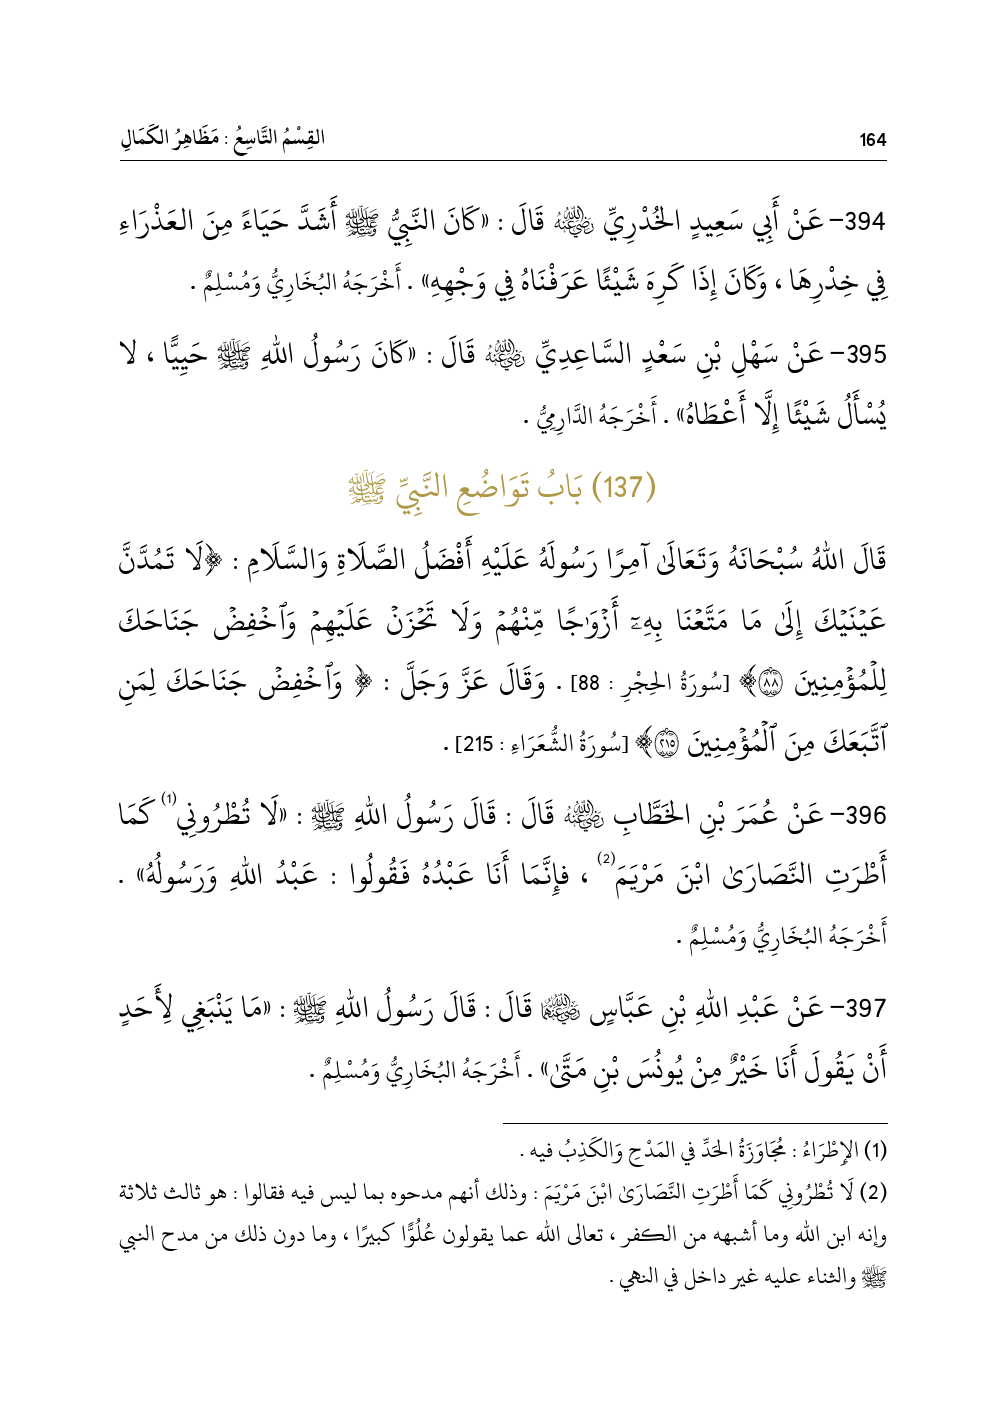 164 القِسْمُ التَّاسِعُ : مَظَاهِرُ الكَمَالِ
394- عَنْ أَبِي سَعِيدٍ الخُدْرِيِّ رضي الله عنه قَالَ : «كَانَ النَّبِيُّ ﷺ أَشَدَّ حَيَاءً مِنَ العَذْرَاءِ
فِي خِدْرِهَا ، وَكَانَ إِذَا كَرِهَ شَيْئًا عَرَفْنَاهُ فِي وَجْهِهِ» . أَخْرَجَهُ البُخَارِيُّ وَمُسْلِمٌ .
395- عَنْ سَهْلِ بْنِ سَعْدٍ السَّاعِدِيِّ رضي الله عنه قَالَ : «كَانَ رَسُولُ اللهِ ﷺ حَيِيًّا ، لا
يُسْأَلُ شَيْئًا إِلَّا أَعْطَاهُ» . أَخْرَجَهُ الدَّارِمِيُّ .
(137) بَابُ تَوَاضُعِ النَّبِيِّ ﷺ
قَالَ اللهُ سُبْحَانَهُ وَتَعَالَىٰ آمِرًا رَسُولَهُ عَلَيْهِ أَفْضَلُ الصَّلَاةِ وَالسَّلَامِ : ﴿لَا تَمُدَّنَّ
عَيْنَيْكَ إِلَىٰ مَا مَتَّعْنَا بِهِۦٓ أَزْوَٰجًا مِّنْهُمْ وَلَا تَحْزَنْ عَلَيْهِمْ وَٱخْفِضْ جَنَاحَكَ
لِلْمُؤْمِنِينَ ٨٨﴾ [سُورَةُ الحِجْرِ : 88] . وَقَالَ عَزَّ وَجَلَّ : ﴿ وَٱخْفِضْ جَنَاحَكَ لِمَنِ
ٱتَّبَعَكَ مِنَ ٱلْمُؤْمِنِينَ ٢١٥﴾ [سُورَةُ الشُّعَرَاءِ : 215] .
396- عَنْ عُمَرَ بْنِ الخَطَّابِ رضي الله عنه قَالَ : قَالَ رَسُولُ اللهِ ﷺ : «لَا تُطْرُونِي(1) كَمَا
أَطْرَتِ النَّصَارَىٰ ابْنَ مَرْيَمَ(2) ، فإِنَّمَا أَنَا عَبْدُهُ فَقُولُوا : عَبْدُ اللهِ وَرَسُولُهُ» .
أَخْرَجَهُ البُخَارِيُّ وَمُسْلِمٌ .
397- عَنْ عَبْدِ اللهِ بْنِ عَبَّاسٍ رضي الله عنهما قَالَ : قَالَ رَسُولُ اللهِ ﷺ : «مَا يَنْبَغِي لِأَحَدٍ
أَنْ يَقُولَ أَنَا خَيْرٌ مِنْ يُونُسَ بْنِ مَتَّىٰ» . أَخْرَجَهُ البُخَارِيُّ وَمُسْلِمٌ .
(1) الإِطْرَاءُ : مُجَاوَزَةُ الحَدِّ فِي المَدْحِ وَالكَذِبُ فيه .
(2) لَا تُطْرُونِي كَمَا أَطْرَتِ النَّصَارَىٰ ابْنَ مَرْيَمَ : وذلك أنهم مدحوه بما ليس فيه فقالوا : هو ثالث ثلاثة
وإنه ابن الله وما أشبهه من الكفر ، تعالى الله عما يقولون عُلُوًّا كبيرًا ، وما دون ذلك من مدح النبي
ﷺ والثناء عليه غير داخل في النهي .